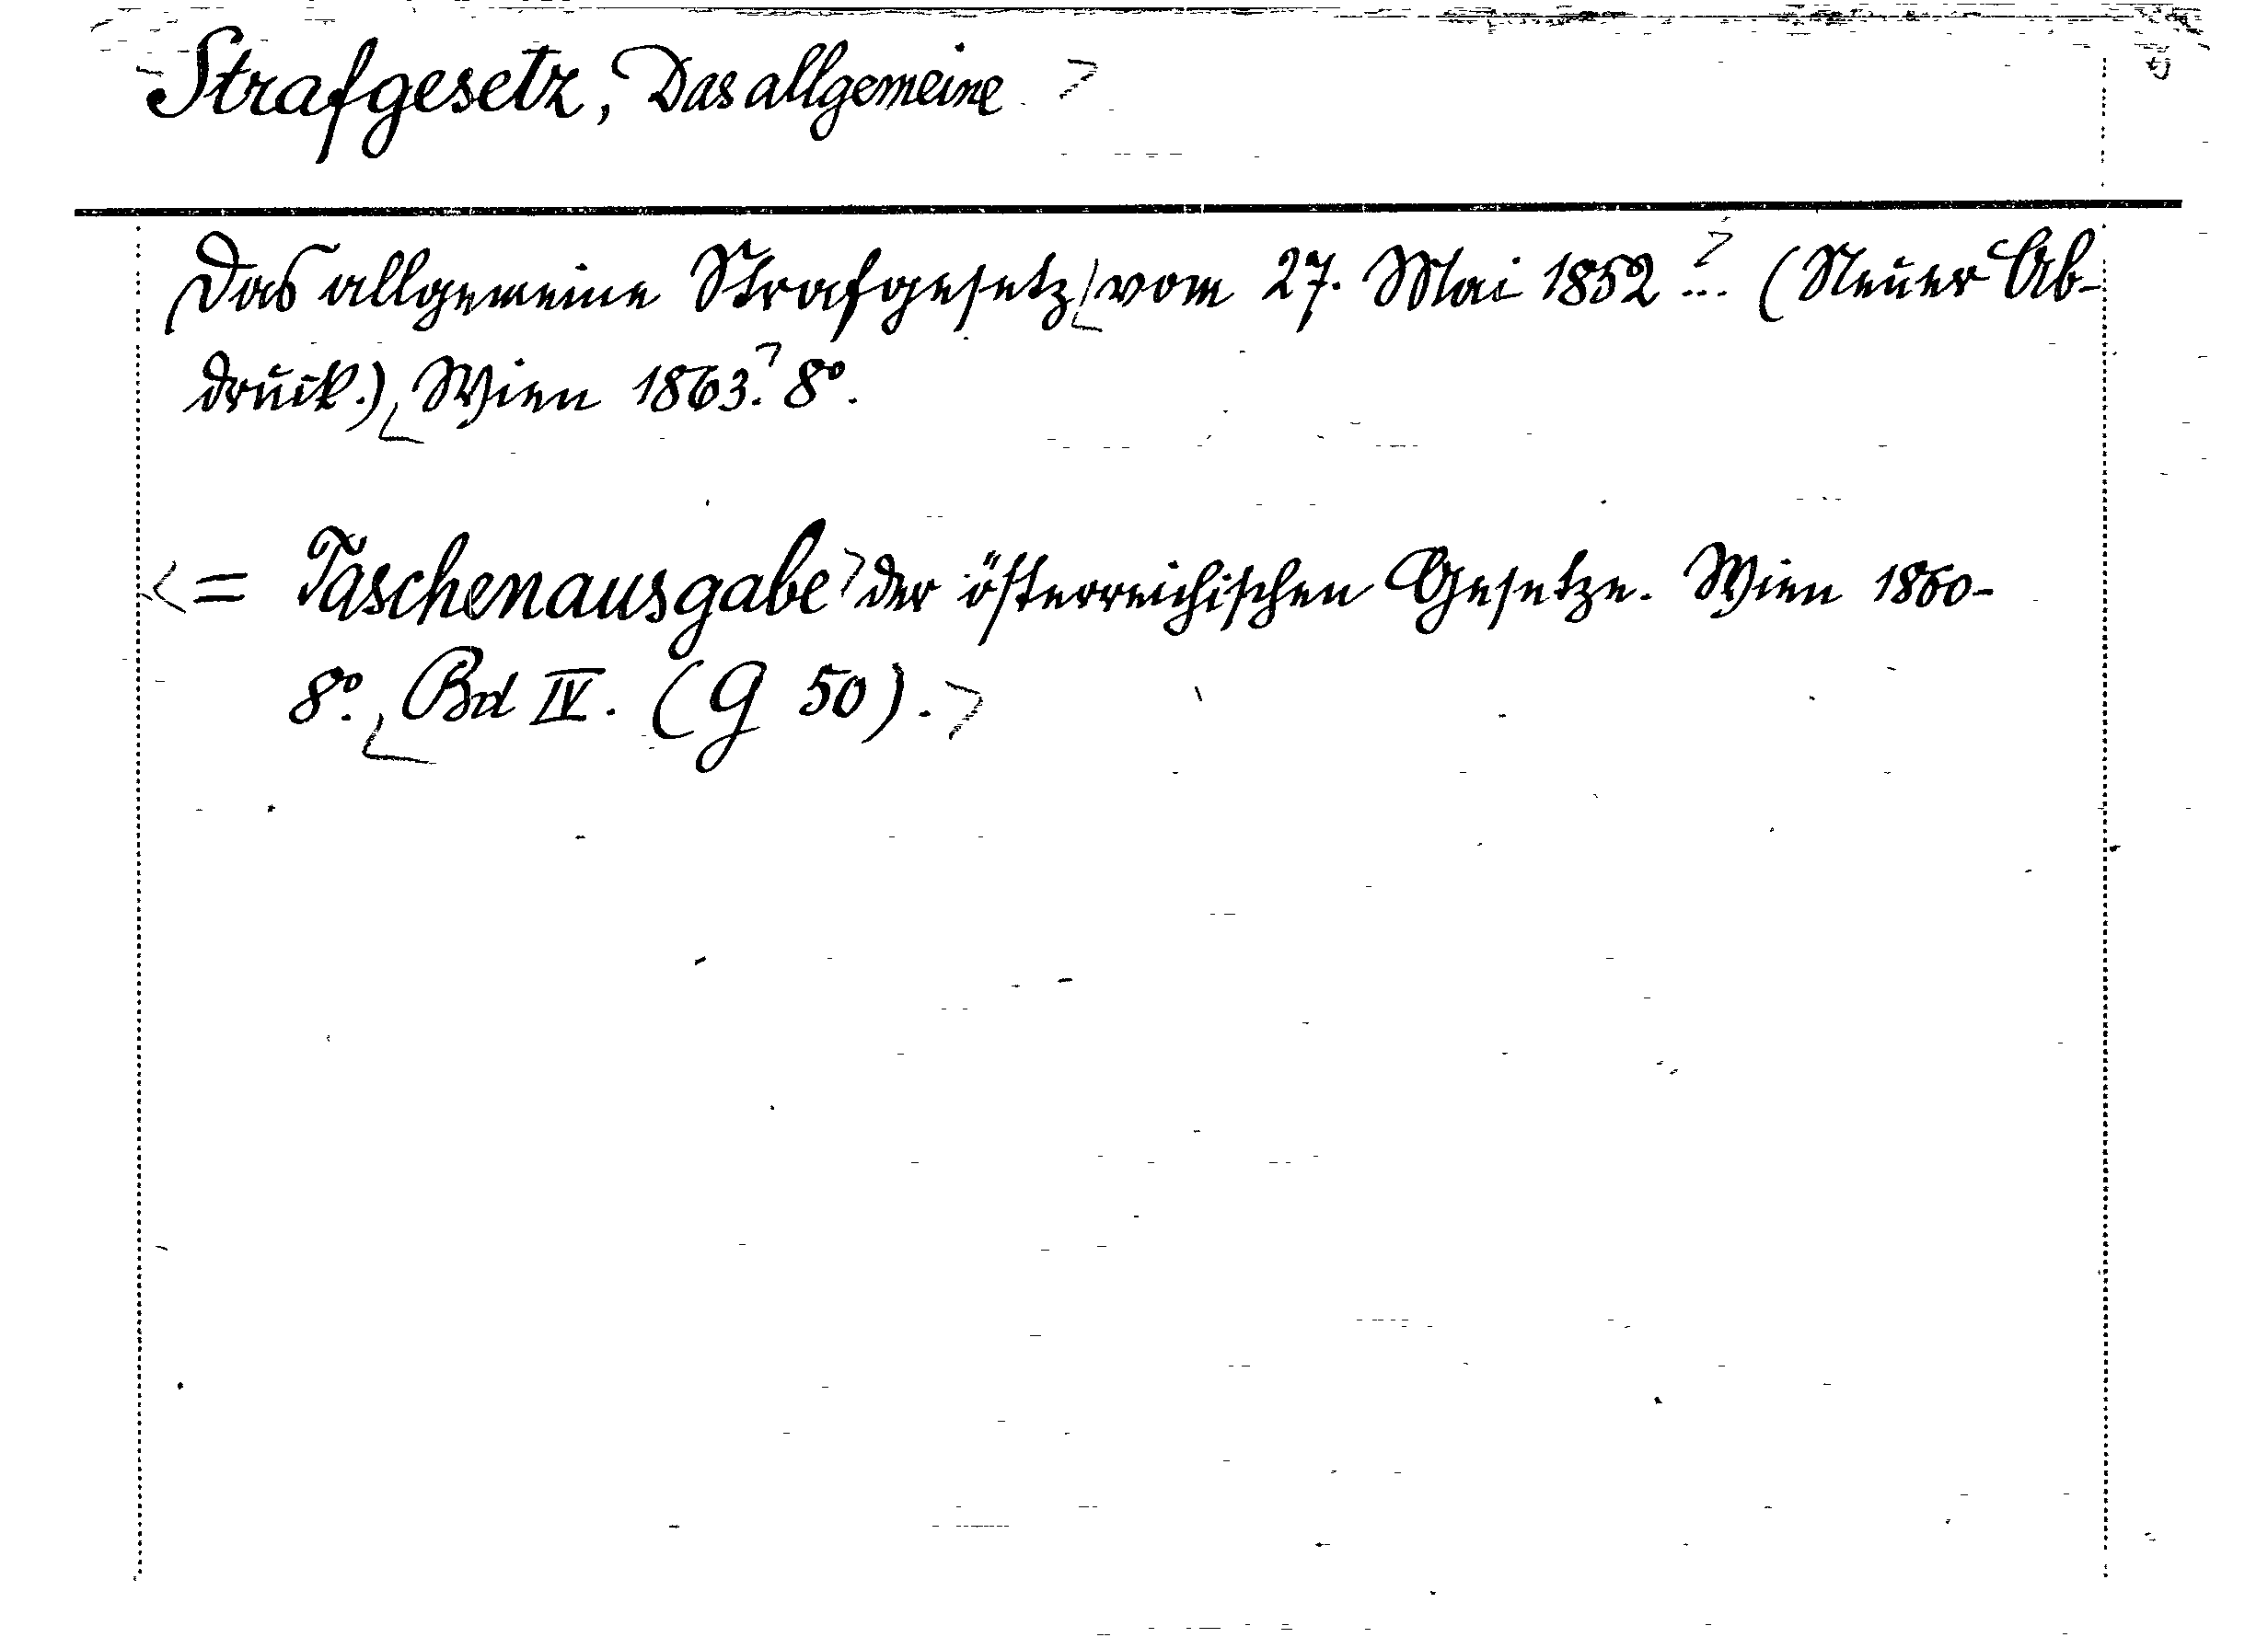 Strafgesetz, Das allgemeine
Das allgemeine Strafgesetz vom 27. Mai 1852 ... (Neuer Ab-
druck.) Wien 1863. 8°.
= Taschenausgabe der österreichischen Gesetze. Wien 1860-
8°. Bd IV. (G 50).